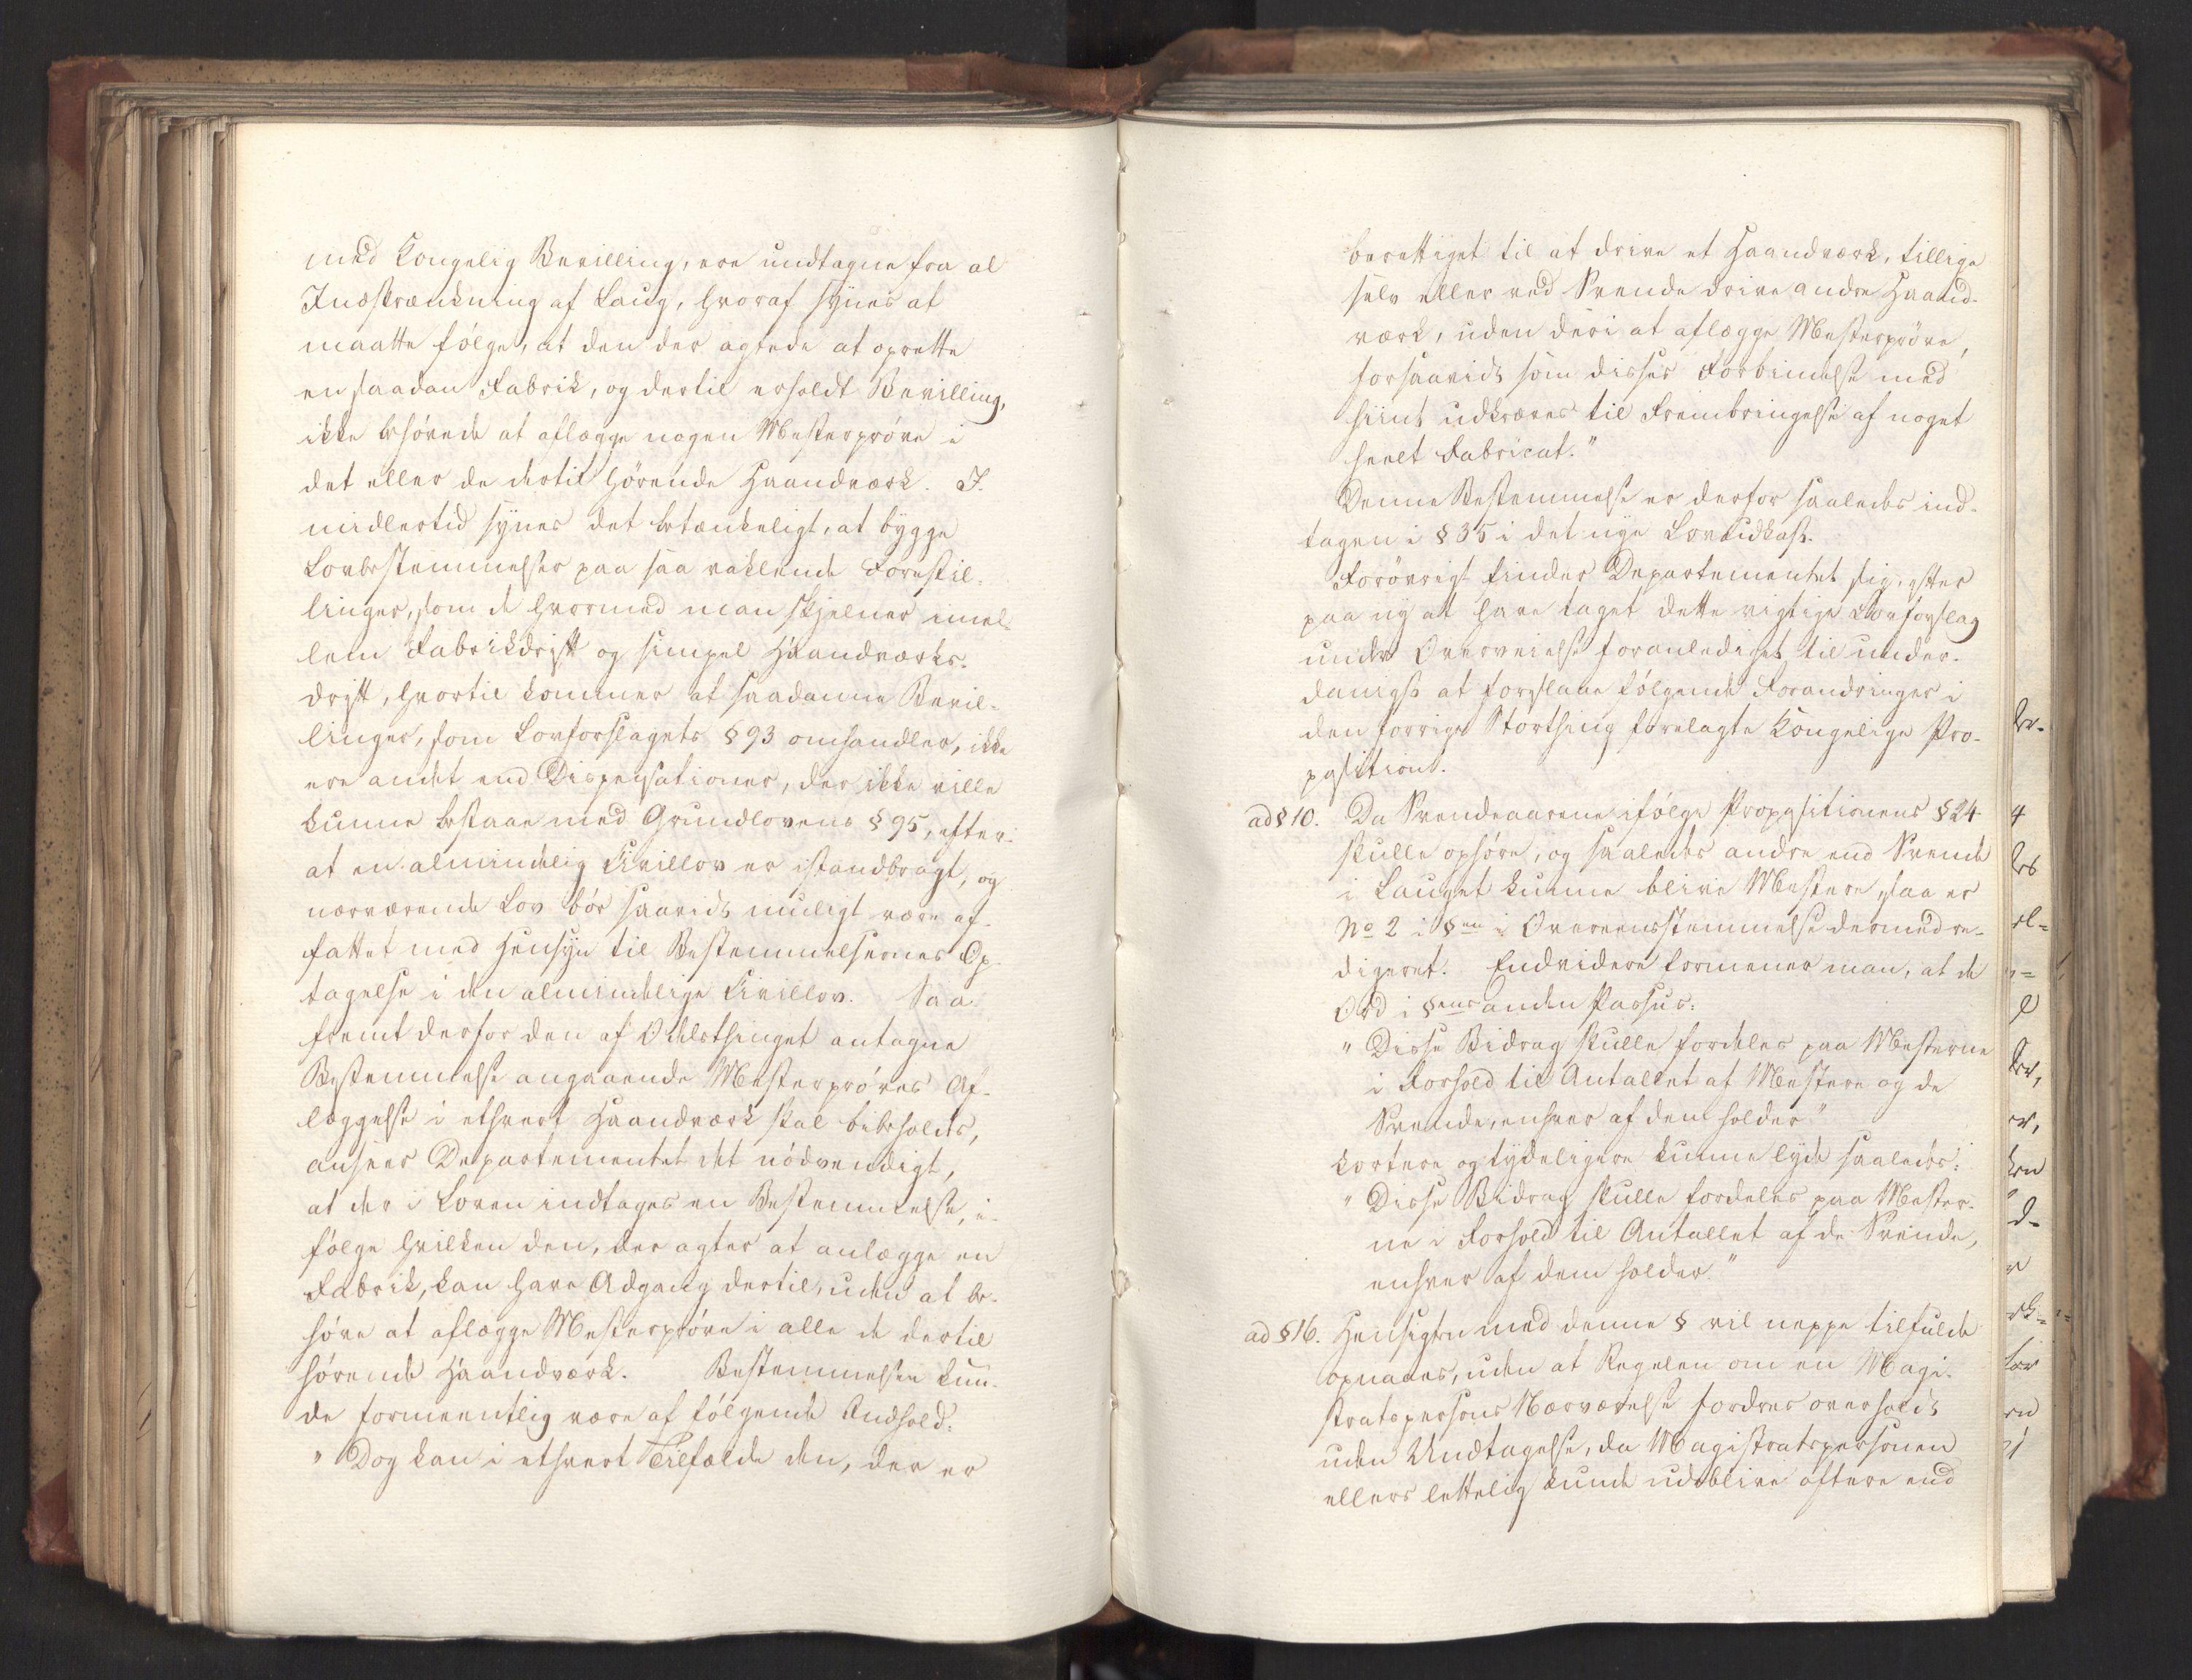 med Kongelig Bevilling, ere undtagne fra al
Indskrænkning af Laug, hvoraf synes at
maatte følge, at den der agtede at oprette
en saadan Fabrik, og dertil erholdt Bevilling,
ikke behøvede at aflægge nogen Mesterprøve i
det eller de dertil hørende Haandværk. I-
midlertid synes det betænkeligt, at bygge
Lovbestemmelser paa saa vaklende Forestil-
linger, som de hvormed man skjelner imel-
lem Fabrikdrift og simpel Haandværks-
drift, hvortil kommer at saadanne Bevil-
linger, som Lovforslagets § 93 omhandler, ikke
ere andet end Dispensationer, der ikke ville
kunne bestaae med Grundlovens § 95, efter-
at en almindelig Civillov er istandbragt, og
nærværende Lov bør saavidt muligt være af-
fattet med Hensyn til Bestemmelsernes Op-
tagelse i den almindelige Civillov. Saa-
fremt derfor den af Odelsthinget antagne
Bestemmelse angaaende Mesterprøves Af-
læggelse i ethvert Haandværk skal bibeholdes,
anseer Departementet det nødvendigt,
at der i Loven indtages en Bestemmelse, i-
følge hvilken den, der agter at anlægge en
Fabrik, kan have Adgang dertil, uden at be-
høve at aflægge Mesterprøve i alle de dertil
hørende Haandværk. Bestemmelsen kun-
de formeentlig være af følgende Indhold:
" Dog kan i ethvert Tilfælde den, der er
berettiget til at drive et Haandværk, tillige
selv eller ved Svende drive andre Haand-
værk, uden deri at aflægge Mesterprøve,
forsaavidt som disses Forbindelse med
hiint udkræves til Frembringelse af noget
heelt Fabricat."
Denne Bestemmelse er derfor saaledes ind-
tagen i § 35 i det nye Lovudkast.
Forøvrigt finder Departementet sig, efter
paa ny at have taget dette vigtige Lovforslag
under Overveielse foranlediget til under-
danigst at foreslaae følgende Forandringer i
den forrige Storthing forelagte Kongelige Pro-
position.
ad § 10. Da Svendeaarene ifølge Propositionens § 24
skulle ophøre, og saaledes andre end Svende
i Lauget kunne blive Mestere, saa er
No 2 i §en i Overeensstemmelse dermed re-
digeret. Endvidere formener man, at de
Ord i §ens anden Passus:
" Disse Bidrag skulle fordeles paa Mesterne
i Forhold til Antallet af Mestere og de
Svende, enhver af dem holder"
kortere og tydeligere kunne lyde saaledes:
" Disse Bidrag skulle fordeles paa Mester-
ne i Forhold til Antallet af de Svende,
enhver af dem holder."
ad § 16. Hensigten med denne § vil neppe tilfulde
opnaaes, uden at Regelen om en Magi-
stratspersons Nærværelse fordres overholdt
uden Undtagelse, da Magistratspersonen
ellers lettelig kunde udeblive oftere end